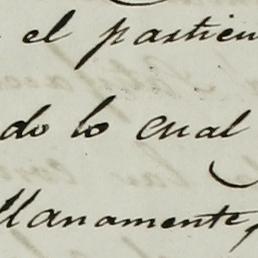 el particu
do lo cual
llanamente,